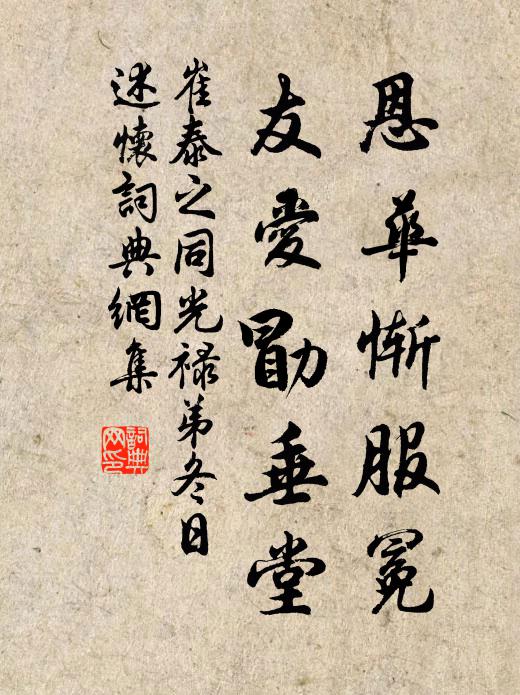 恩華慚服冕
友愛勖垂堂
崔泰之同光禄弟冬日
述懷詞典網集
詞典
网印